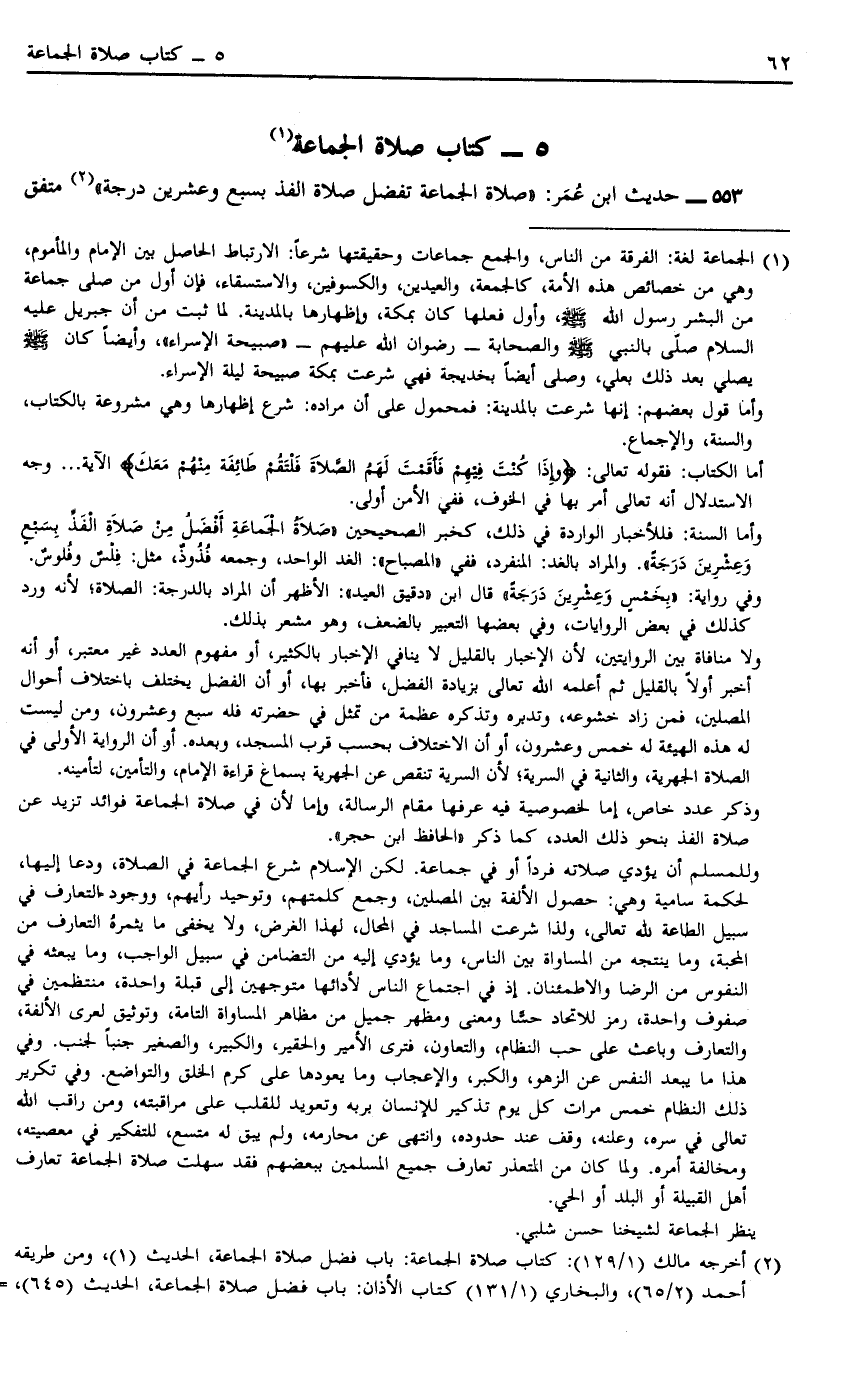 ٦٢
٥ ـ كتاب صلاة الجماعة
٥ ـ كتاب صلاة الجماعة(١)
٥٥٣ ـ حديث ابن عُمَر: «صلاة الجماعة تفضل صلاة الفذ بسبع وعشرين درجة»(٢) متفق
(١) الجماعة لغة: الفرقة من الناس، والجمع جماعات وحقيقتها شرعاً: الارتباط الحاصل بين الإمام والمأموم،
وهي من خصائص هذه الأمة، كالجمعة، والعيدين، والكسوفين، والاستسقاء، فإن أول من صلى جماعة
من البشر رسول الله ﷺ، وأول فعلها كان بمكة، وإظهارها بالمدينة. لما ثبت من أن جبريل عليه
السلام صلّى بالنبي ﷺ والصحابة ـ رضوان الله عليهم ـ «صبيحة الإسراء»، وأيضاً كان ﷺ
يصلي بعد ذلك بعلي، وصلى أيضاً بخديجة فهي شرعت بمكة صبيحة ليلة الإسراء.
وأما قول بعضهم: إنها شرعت بالمدينة: فمحمول على أن مراده: شرع إظهارها وهي مشروعة بالكتاب،
والسنة، والإجماع.
أما الكتاب: فقوله تعالى: ﴿وإِذَا كُنْتَ فِيهِمْ فَأَقَمْتَ لَهُمُ الصَّلاَةَ فَلْتَقُمْ طَائِفَة مِنْهُمْ مَعَكَ﴾ الآية... وجه
الاستدلال أنه تعالى أمر بها في الخوف، ففي الأمن أولى.
وأما السنة: فللأخبار الواردة في ذلك، كخبر الصحيحين «صَلاَةُ الْجَماعَةِ أَفْضَلُ مِنْ صَلاَةِ الْفَذِّ بِسَبْعٍ
وَعِشْرِينَ دَرَجَةً». والمراد بالغد: المنفرد، ففي «المصباح»: الغد الواحد، وجمعه فُذُوذٌ، مثل: فِلْسٌ وفُلوسٌ.
وفي رواية: «بِخَمْسٍ وَعِشْرِينَ دَرَجَةً» قال ابن «دقيق العيد»: الأظهر أن المراد بالدرجة: الصلاة؛ لأنه ورد
كذلك في بعض الروايات، وفي بعضها التعبير بالضعف، وهو مشعر بذلك.
ولا منافاة بين الروايتين، لأن الإخبار بالقليل لا ينافي الإخبار بالكثير، أو مفهوم العدد غير معتبر، أو أنه
أخبر أولاً بالقليل ثم أعلمه الله تعالى بزيادة الفضل، فأخبر بها، أو أن الفضل يختلف باختلاف أحوال
المصلين، فمن زاد خشوعه، وتدبره وتذكره عظمة من تمثل في حضرته فله سبع وعشرون، ومن ليست
له هذه الهيئة له خمس وعشرون، أو أن الاختلاف بحسب قرب المسجد، وبعده. أو أن الرواية الأولى في
الصلاة الجهرية، والثانية في السرية؛ لأن السرية تنقص عن الجهرية بسماغ قراءة الإمام، والتأمين، لتأمينه.
وذكر عدد خاص، إما لخصوصية فيه عرفها مقام الرسالة، وإما لأن في صلاة الجماعة فوائد تزيد عن
صلاة الفذ بنحو ذلك العدد، كما ذكر «الحافظ ابن حجر».
وللمسلم أن يؤدي صلاته فرداً أو في جماعة. لكن الإسلام شرع الجماعة في الصلاة، ودعا إليها،
لحكمة سامية وهي: حصول الألفة بين المصلين، وجمع كلمتهم، وتوحيد رأيهم، ووجود التعارف في
سبيل الطاعة لله تعالى، ولذا شرعت المساجد في المحال، لهذا الغرض، ولا يخفى ما يثمرهُ التعارف من
المحبة، وما ينتجه من المساواة بين الناس، وما يؤدي إليه من التضامن في سبيل الواجب، وما يبعثه في
النفوس من الرضا والاطمئنان. إذ في اجتماع الناس لأدائها متوجهين إلى قبلة واحدة، منتظمين في
صفوف واحدة، رمز للاتحاد حسًّا ومعنى ومظهر جميل من مظاهر المساواة التامة، وتوثيق لعرى الألفة،
والتعارف وباعث على حب النظام، والتعاون، فترى الأمير والحقير، والكبير، والصغير جنباً لجنب. وفي
هذا ما يبعد النفس عن الزهو، والكبر، والإعجاب وما يعودها على كرم الخلق والتواضع. وفي تكرير
ذلك النظام خمس مرات كل يوم تذكير للإنسان بربه وتعويد للقلب على مراقبته، ومن راقب الله
تعالى في سره، وعلنه، وقف عند حدوده، وانتهى عن محارمه، ولم يبق له متسع، للتفكير في معصيته،
ومخالفة أمره. ولما كان من المتعذر تعارف جميع المسلمين ببعضهم فقد سهلت صلاة الجماعة تعارف
أهل القبيلة أو البلد أو الحي.
ينظر الجماعة لشيخنا حسن شلبي.
(٢) أخرجه مالك (١/١٢٩): كتاب صلاة الجماعة: باب فضل صلاة الجماعة، الحديث (١)، ومن طريقه
أحمد (٢/٦٥)، والبخاري (١/١٣١) كتاب الأذان: باب فضل صلاة الجماعة، الحديث (٦٤٥)، =